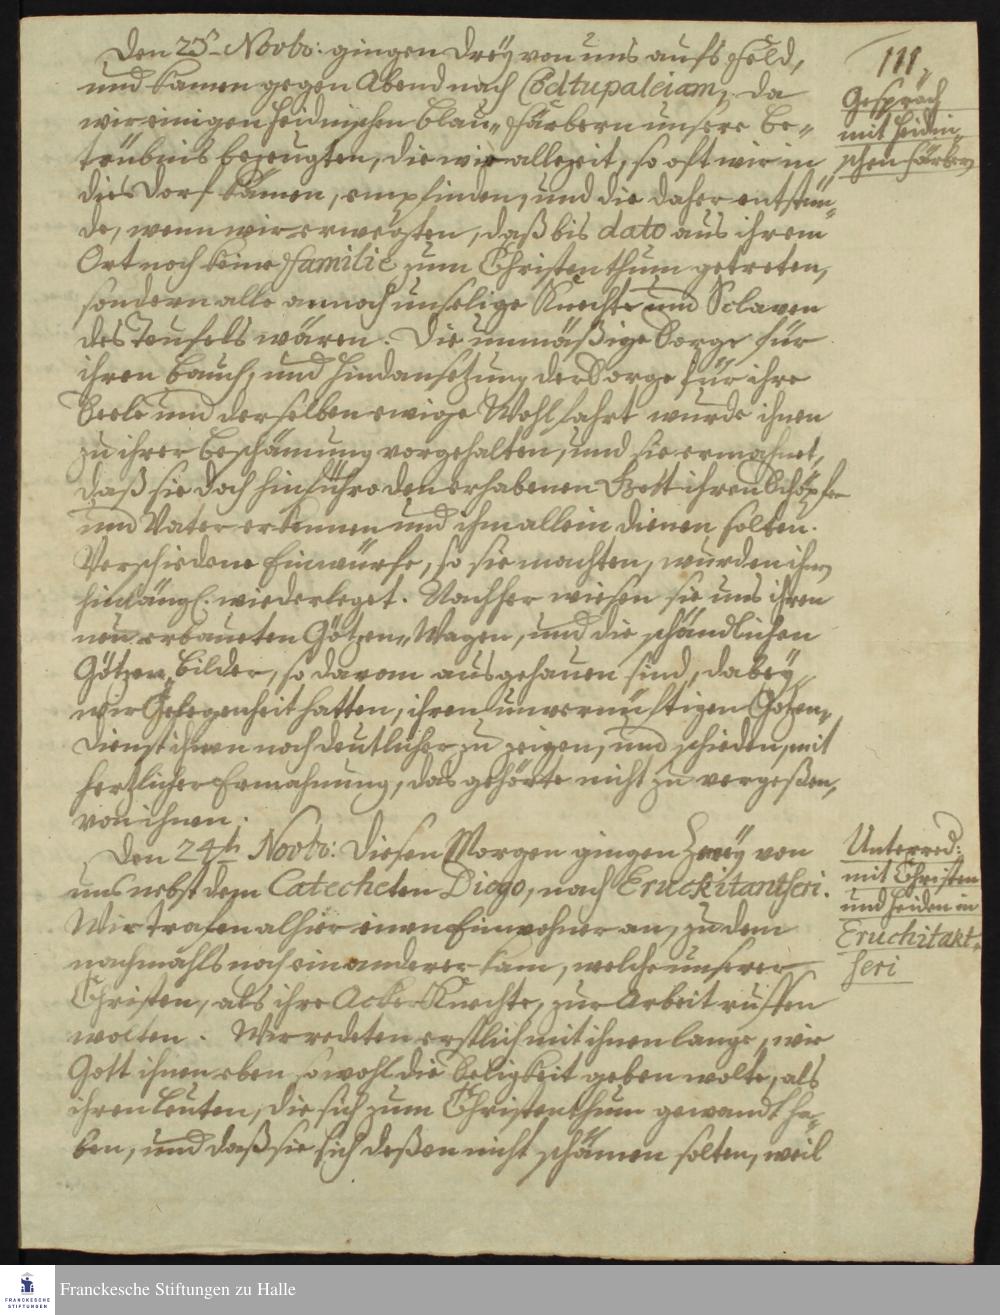 111,
Den 23t Novbr: gingen drey von uns aufs Feld,
und kamen gegen Abend nach Codtupaleiam, da
wir einigen heidnischen Blau-Färbern unsere Be-
trübnis bezeugten, die wir allezeit, so oft wir in
dies Dorf kämen, empfinden, und die daher entstün-
de, wenn wir erwegten, daß bis dato aus ihrem
Ort noch keine Familie zum Christenthum getreten,
sondern alle annoch unselige Knechte und Sclaven
des Teufels wären. Die unmäßige Sorge für
ihren Bauch, und Hindansetzung der Sorge für ihre
Seele und derselben ewige Wohlfahrt wurde ihnen
zu ihrer Beschämung vorgehalten, und sie ermahnet,
daß sie doch hinführo den erhabenen Gott ihren Schöpfer
und Vater erkennen und ihm allein dienen solten.
Verschiedene Einwürfe, so sie machten, wurden ihnen
hinlängl. wiederleget. Nachher wiesen sie uns ihren
neu erbaueten Götzen-Wagen, und die schändlichen
Götzen-Bilder, so daran ausgehauen sind, dabey
wir Gelegenheit hatten, ihren unvernünftigen Götzen-
dienst ihnen noch deutlicher zu zeigen, und schieden, mit
hertzlicher Ermahnung, das gehörte nicht zu vergeßen,
von ihnen.
Den 24th Novbr: Diesen Morgen gingen Zwey von
uns nebst dem Catecheten Diego, nach Eruckitantscheri.
Wir trafen alhier einen Einwohner an, zu dem
nachmahls noch ein anderer kam, welche unserer
Christen, als ihre Acker Knechte, zur Arbeit ruffen
wolten. Wir redeten erstlich mit ihnen lange, wie
Gott ihnen eben sowohl die Seligkeit geben wolte, als
ihren Leuten, die sich zum Christenthum gewandt ha-
ben, und daß sie sich deßen nicht schämen solten, weil
Gespräch
mit heidni-
schen Färbern
Unterred:
mit Christen
und Heiden in
Eruchitakt-
scheri
FRANCKESCHE
STIFTUNGEN
Franckesche Stiftungen zu Halle